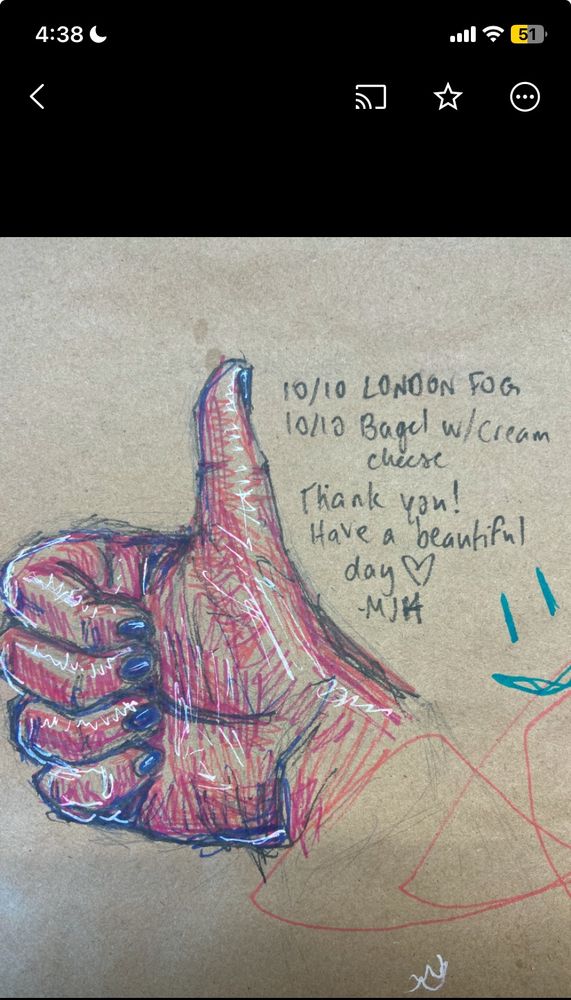 4:38
51
10/10 LONDON FOG
10/10 Bagel w/cream
cheese
Thank you!
Have a beautiful
day ♡
-MJH